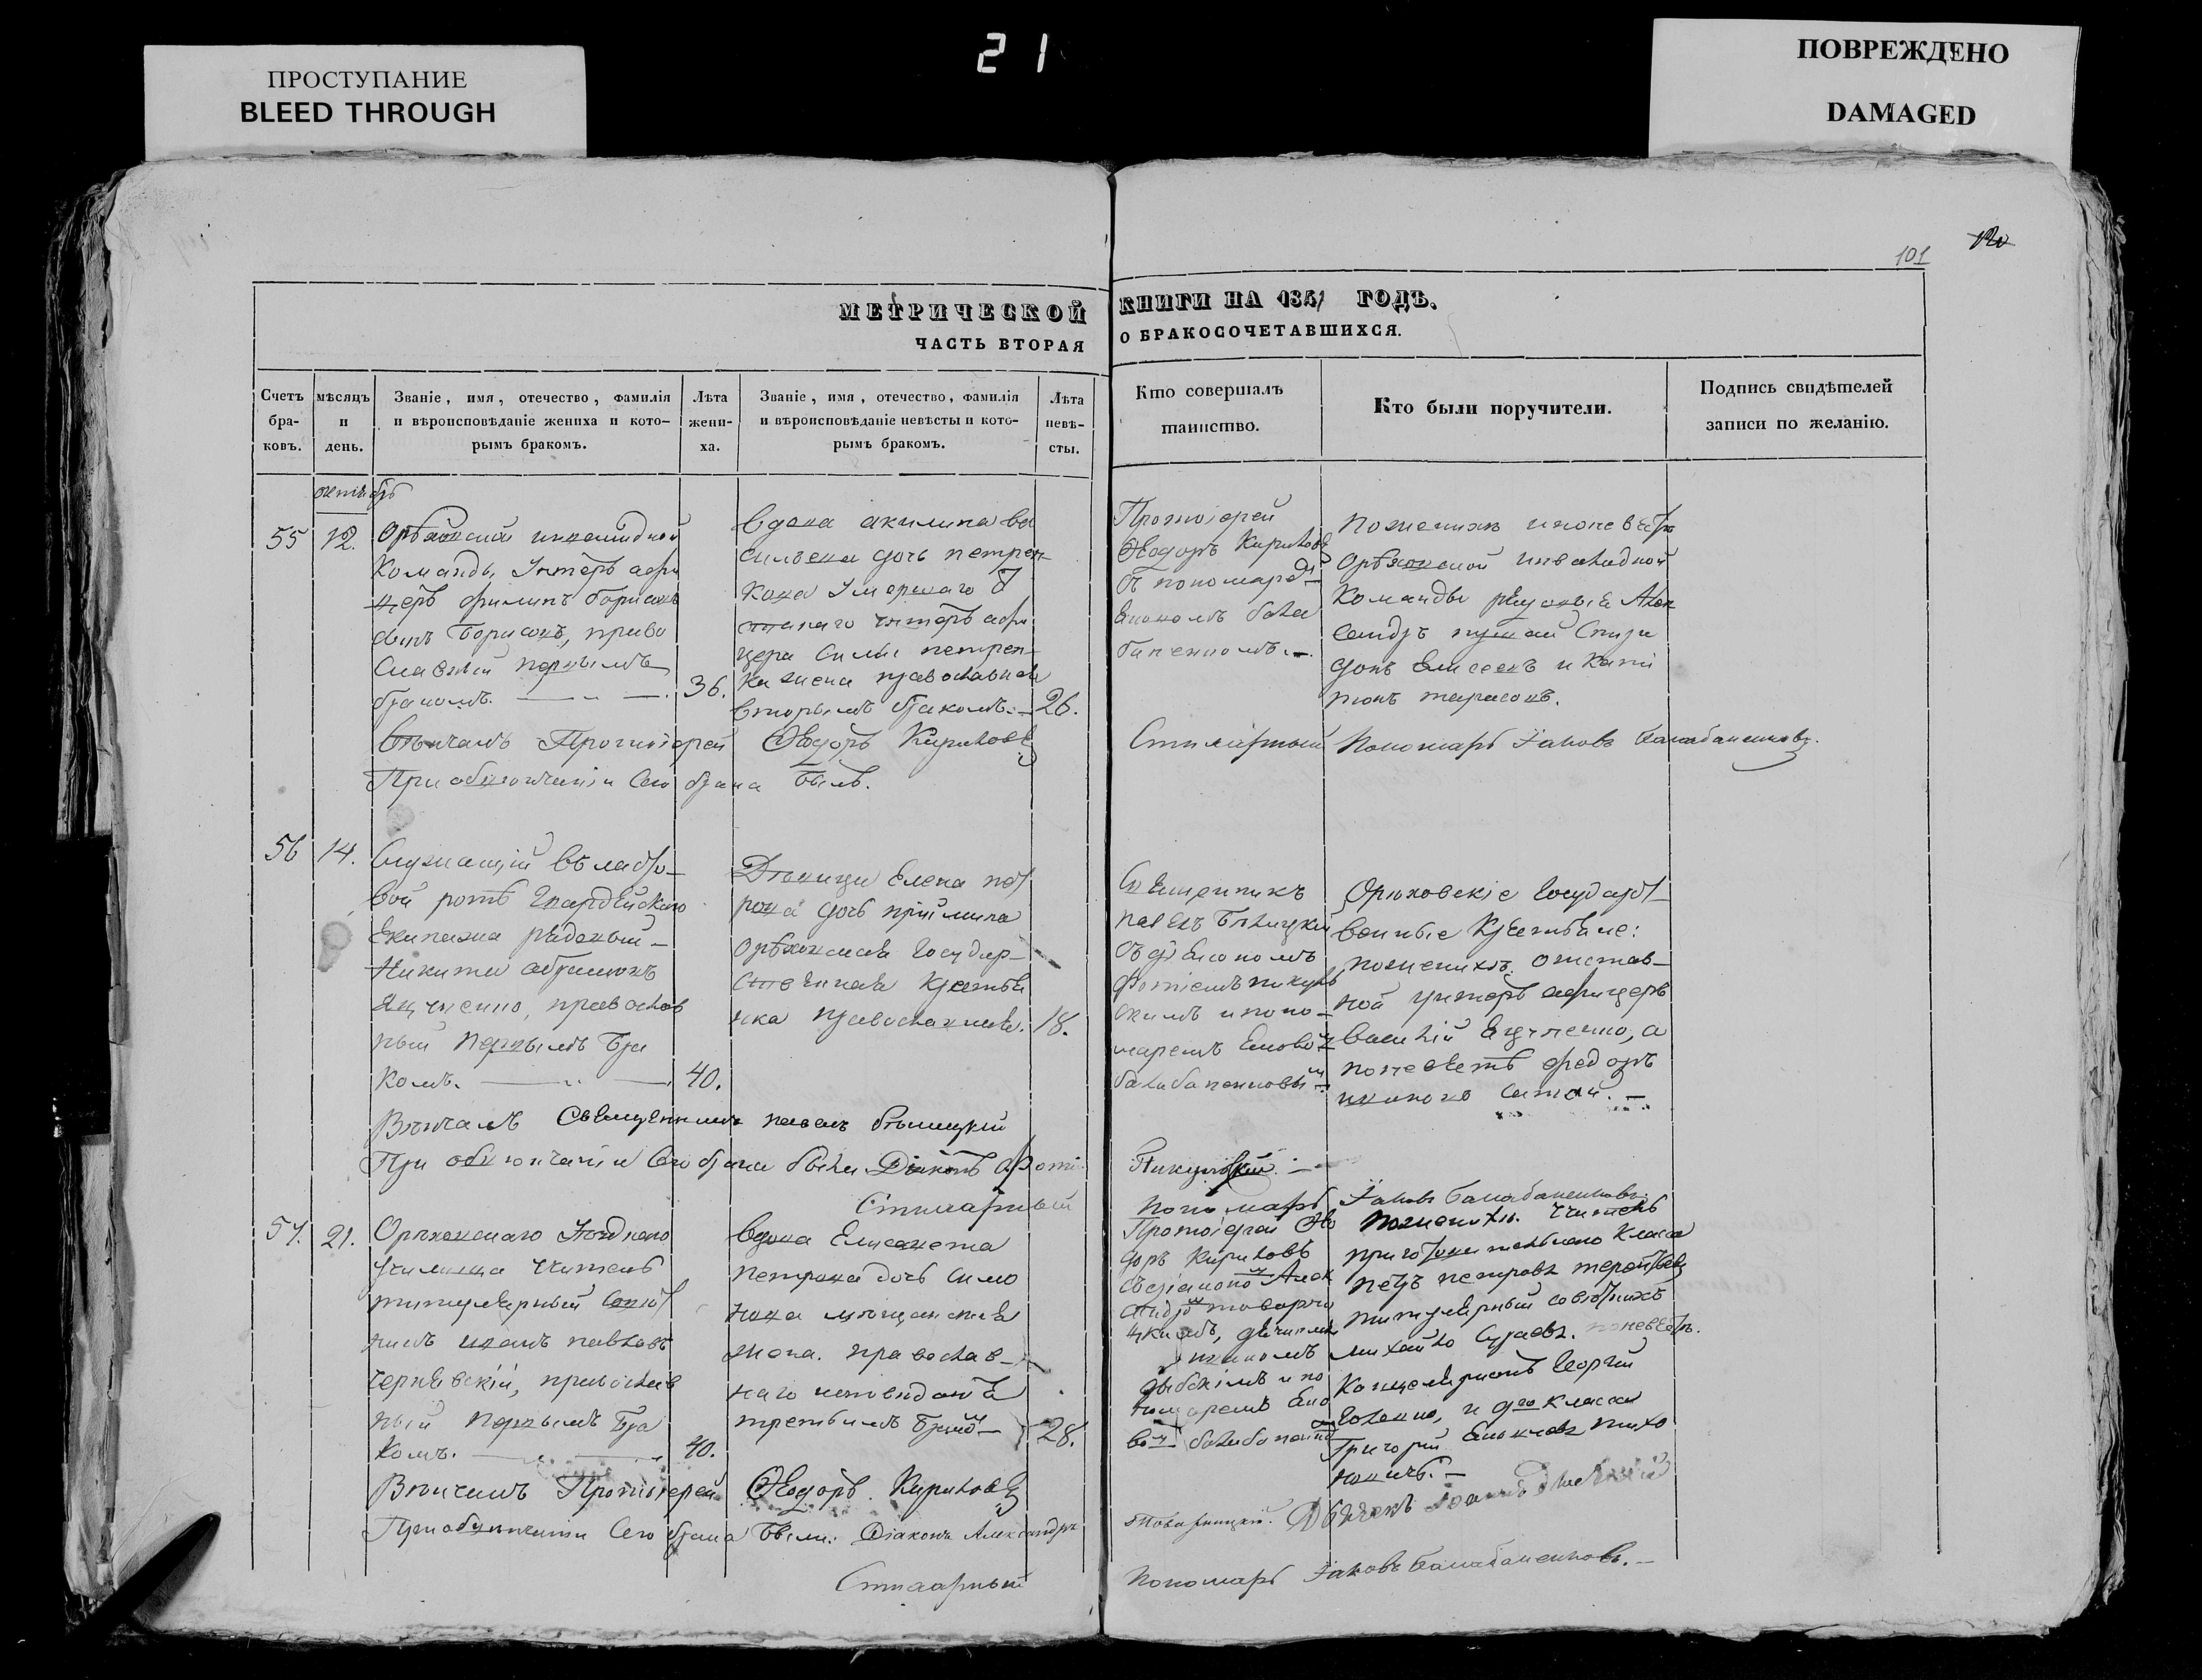 ПРОСТУПАНИЕ
BLEED THROUGH
21
ПОВРЕЖДЕНО
DAMAGED
101
МЕТРИЧЕСКОЙ КНИГИ НА 1841 ГОДЪ.
ЧАСТЬ ВТОРАЯ О БРАКОСОЧЕТАВШИХСЯ.
Счетъ бра-ковъ.
мѣсяцъ и день.
Званіе, имя, отечество, фамилія
и вѣроисповѣданіе жениха и кото-
рымъ бракомъ.
Лѣта жени-ха.
Званіе, имя, отечество, фамилія
и вѣроисповѣданіе невѣсты и кото-
рымъ бракомъ.
Лѣта невѣ-сты.
Кто совершалъ
таинство.
Кто были поручители.
Подпись свидѣтелей
записи по желанію.
октябрь
55
12.
Орѣховской инвалидной
Команды, Унтеръ афи
церъ филипъ борисовъ
сынъ Борисовъ, право
славный первымъ
бракомъ.
36.
Вдова акилина ва
сильева дочь петрен
кова Умершаго
унтеръ афи
цера Силы петрен
ка жена православная
вторымъ бракомъ.
26.
Протоіерей
Ѳеодоръ Кириловъ
съ пономаремъ
Яковомъ бала
баненкомъ.
поженихѣ и поневѣстѣ
Орѣховской инвалидной
Команды рядовые Алек
сандръ Спири
донъ Елисеевъ и
тарасовъ.
Вѣнчалъ Протоіерей Ѳеодоръ Кириловъ
При обвѣнчаніи Сего брака былъ.
Стихарный Пономарь Іаковъ Балабаненковъ.
56
14.
Служащій въ ласто-
вой ротѣ Гвардейскаго
Екипажа рядовый
Никита
православ
ный Первымъ Бра
комъ.
40.
Дѣвица Елена пет
рова дочь
Орѣховская Государ-
ственная Крестья
нка православная.
18.
Священникъ
павелъ Бѣлицкій
съ діакономъ
фотіемъ пикуль
скимъ и поно-
маремъ Яковомъ
балабаненковымъ
Орѣховскіе Государст-
венные Крестьяне:
поженихѣ, отстав-
ной унтеръ афицеръ
василій Яценко, а
поневѣстѣ федоръ
Вѣнчалъ Священникъ павелъ бѣлицкій
При обвѣнчаніи Сего брака были Діаконъ Фоті
Пикульскій.
Стихарный
Пономарь Іаковъ Балабаненковъ.
57.
21.
Орѣховскаго Уѣзднаго
училища Учитель
титулярный Совѣт
никъ иванъ павловъ
чернявскій, православ
ный Первымъ Бра
комъ.
40.
Вдова Елисавета
петрова дочь Симо
нова мѣщанская
жена. православ-
наго исповѣданія
третьимъ бракомъ
28.
Протоіерей Ѳео
доръ Кириловъ
съ діакономъ Алек
сандромъ товарни
цкимъ, дьячкомъ
и по
номаремъ Яко
вомъ балабаненко
поженихѣ. Учитель
приготовительнаго Класса
петръ петровъ
титулярный совѣтникъ
михайло поневѣстѣ.
Канцеляристъ Георгій
и Класса
Григорій Яковлевъ тихо
новичъ.
Вѣнчалъ Протоіерей Ѳеодоръ Кириловъ
При обвѣнчаніи Сего брака были: Діаконъ Александръ
Товарницкій. Дьячекъ Іоаннъ
Стихарный
Пономарь Іаковъ Балабаненковъ.